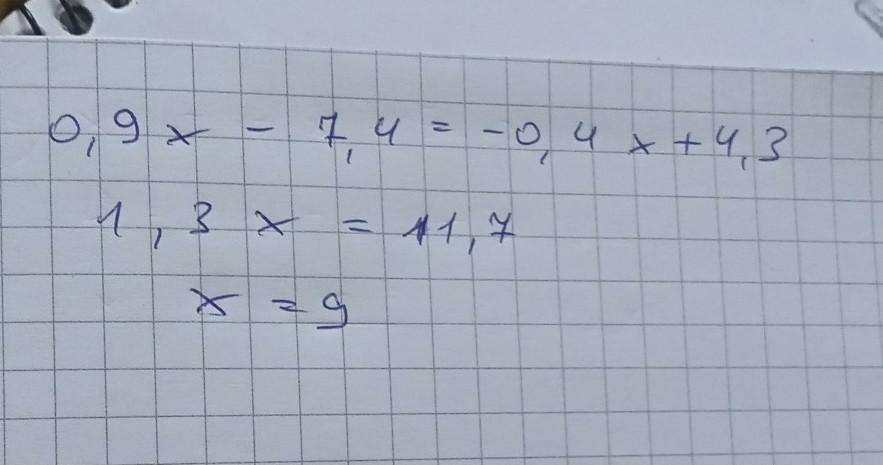 0,9x - 7,4 = -0,4x + 4,3
1,3x = 11,7
x = 9